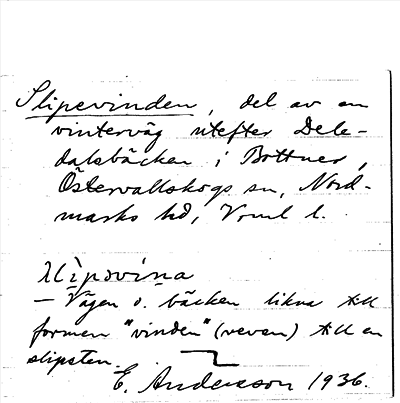 Slipevinden, del av en
vinterväg utefter Dele-
dalsbäcken i Bottner,
Östervallskogs sn, Nord-
marks hd, Vrml l.
slìpəvina
– Vägen o. bäcken likna till
formen "vinden" (veven) till en
slipsten.
E. Andersson 1936.